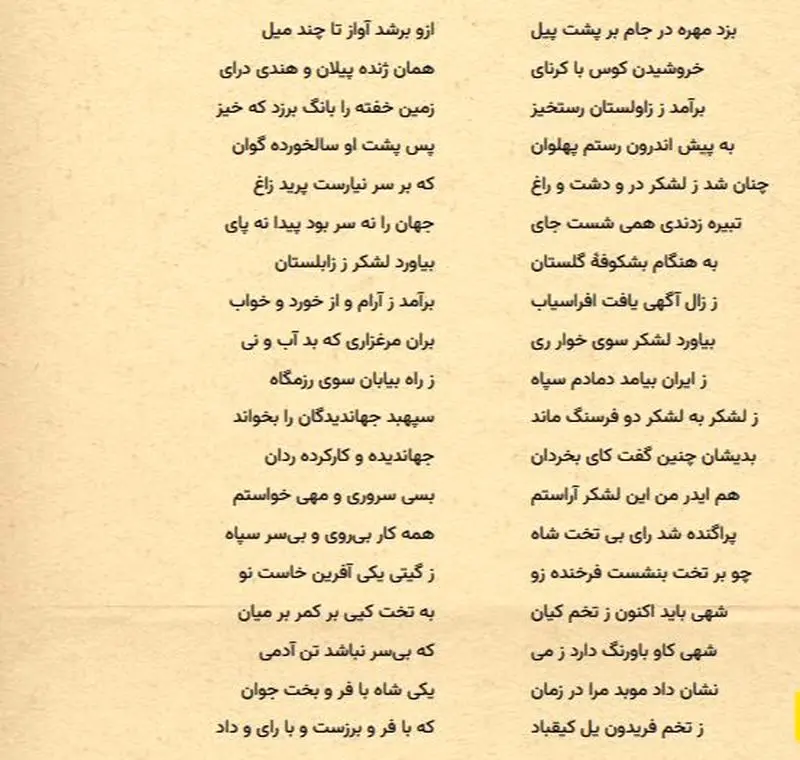 بزد مهره در جام بر پشت پیل ازو برشد آواز تا چند میل
خروشیدن کوس با کرنای همان ژنده پیلان و هندی درای
برآمد ز زاولستان رستخیز زمین خفته را بانگ برزد که خیز
به پیش اندرون رستم پهلوان پس پشت او سالخورده گوان
چنان شد ز لشکر در و دشت و راغ که بر سر نیارست پرید زاغ
تبیره زدندی همی شست جای جهان را نه سر بود پیدا نه پای
به هنگام بشکوفهٔ گلستان بیاورد لشکر ز زابلستان
ز زال آگهی یافت افراسیاب برآمد ز آرام و از خورد و خواب
بیاورد لشکر سوی خوار ری بران مرغزاری که بد آب و نی
ز ایران بیامد دمادم سپاه ز راه بیابان سوی رزمگاه
ز لشکر به لشکر دو فرسنگ ماند سپهبد جهاندیدگان را بخواند
بدیشان چنین گفت کای بخردان جهاندیده و کارکرده ردان
هم ایدر من این لشکر آراستم بسی سروری و مهی خواستم
پراگنده شد رای بی تخت شاه همه کار بی‌روی و بی‌سر سپاه
چو بر تخت بنشست فرخنده زو ز گیتی یکی آفرین خاست نو
شهی باید اکنون ز تخم کیان به تخت کیی بر کمر بر میان
شهی کاو باورنگ دارد ز می که بی‌سر نباشد تن آدمی
نشان داد موبد مرا در زمان یکی شاه با فر و بخت جوان
ز تخم فریدون یل کیقباد که با فر و برزست و با رای و داد